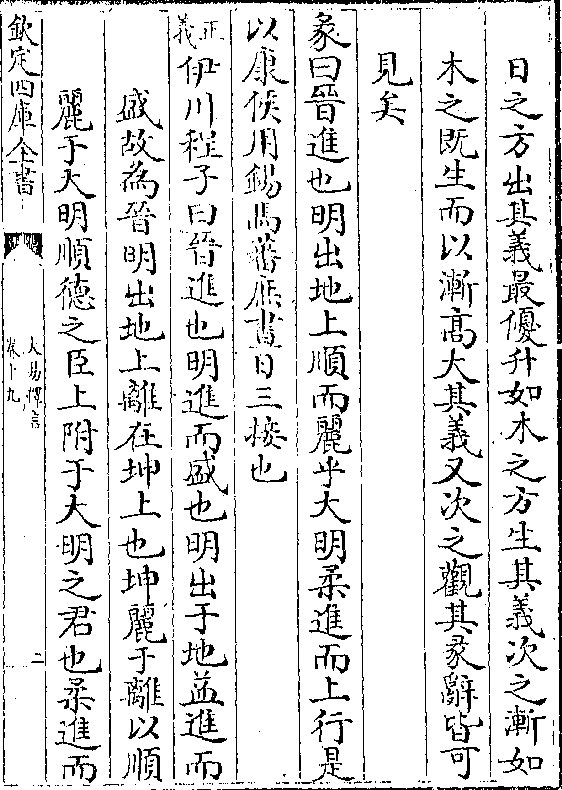 日之方出其義最優升如木之方生其義次之漸如
木之既生而以漸髙大其義又次之觀其彖辭皆可
見矣
彖曰晉進也明出地上順而麗乎大明柔進而上行是
以康侯用錫馬蕃庶晝日三接也
正義伊川程子曰晉進也明進而盛也明出于地益進而
盛故為晉明出地上離在坤上也坤麗于離以順
麗于大明順德之臣上附于大明之君也柔進而
欽定四庫全書
大易擇言
卷十九
二